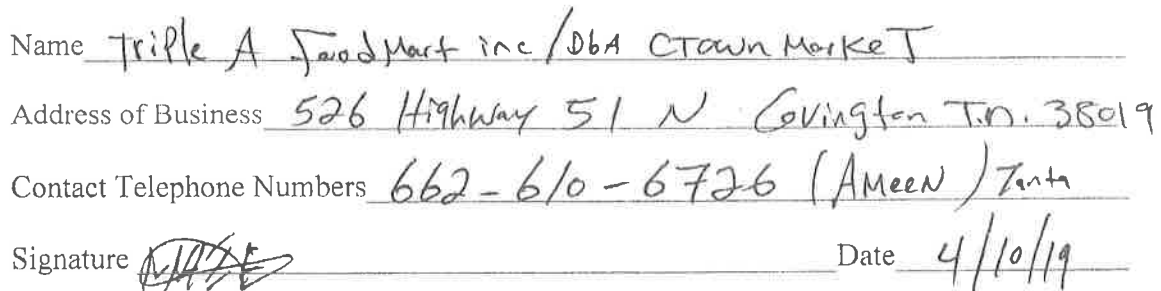 Name Triple A Food Mart inc / DbA CTown MarkeT
Address of Business 526 Highway 51 N Covington T.n. 38019
Contact Telephone Numbers 662-610-6726 (AMeeN) Tanta
Signature
Date 4/10/19